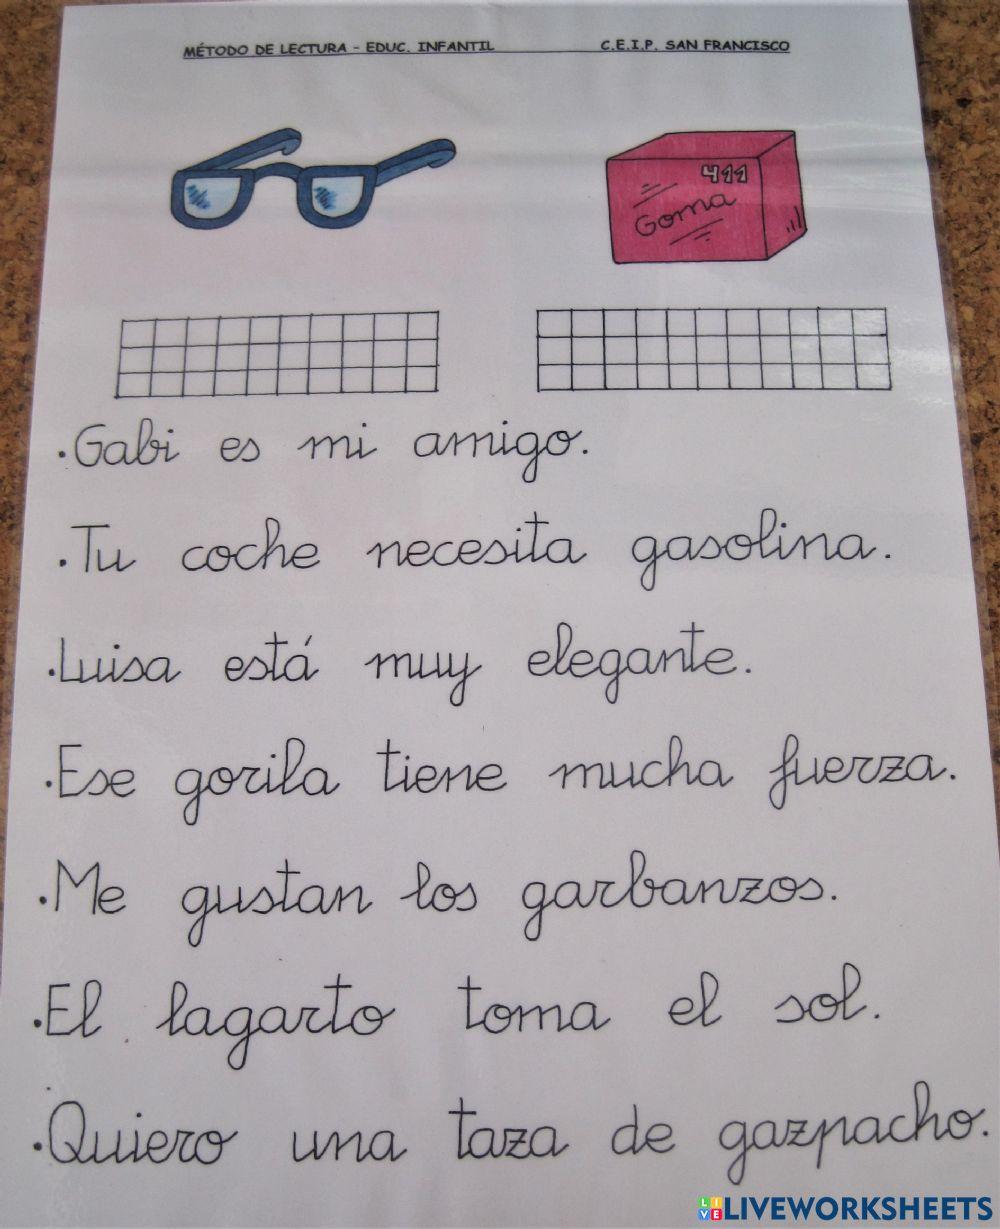 MÉTODO DE LECTURA - EDUC. INFANTIL C.E.I.P. SAN FRANCISCO
411
Goma
.Gabi es mi amigo.
.Tu coche necesita gasolina.
.Luisa está muy elegante.
.Ese gorila tiene mucha fuerza.
.Me gustan los garbanzos.
.El lagarto toma el sol.
.Quiero una taza de gazpacho.
LIVEWORKSHEETS